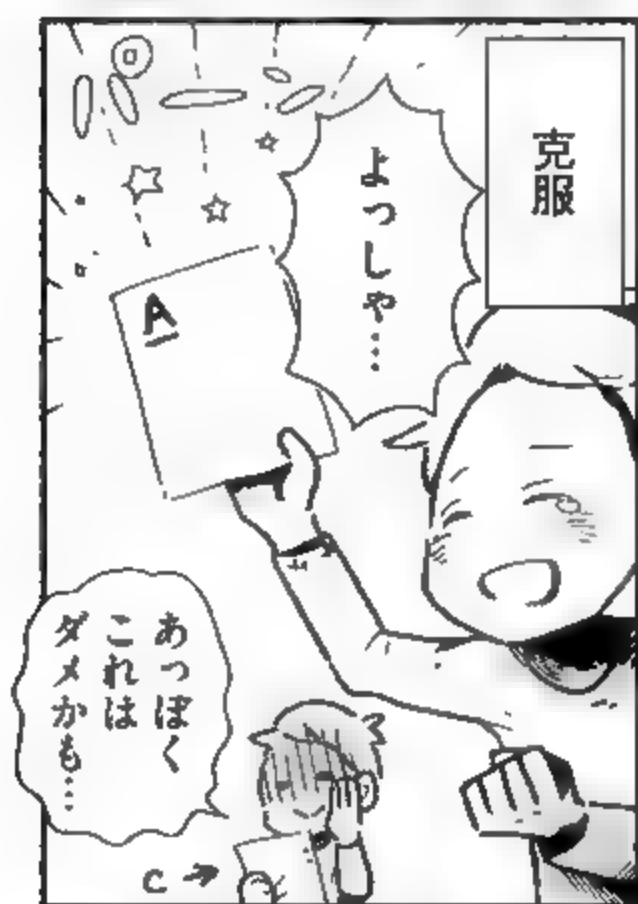 克服
よっしゃ…
A
あっぼく
これは
ダメかも…
C→